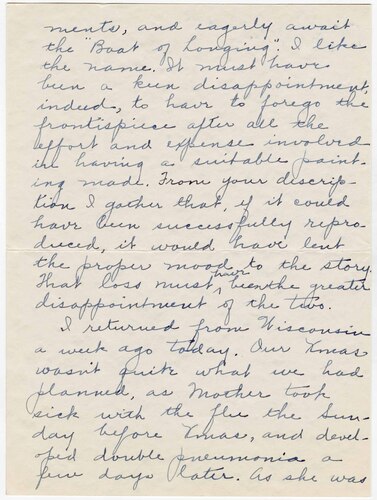 ments, and eagerly await
the "Boat of Longing". I like
the name. It must have
been a keen disappointment,
indeed, to have to forego the
frontispiece after all the
effort and expense involved
in having a suitable paint-
ing made. From your descrip-
tion I gather that, if it could
have been successfully repro-
duced, it would have lent
the proper mood to the story.
That loss must have been the greater
disappointment of the two.
I returned from Wisconsin
a week ago today. Our Xmas
wasn't quite what we had
planned, as Mother took
sick with the flu the Sun-
day before Xmas, and devel-
oped double pneumonia a
few days later. As she was